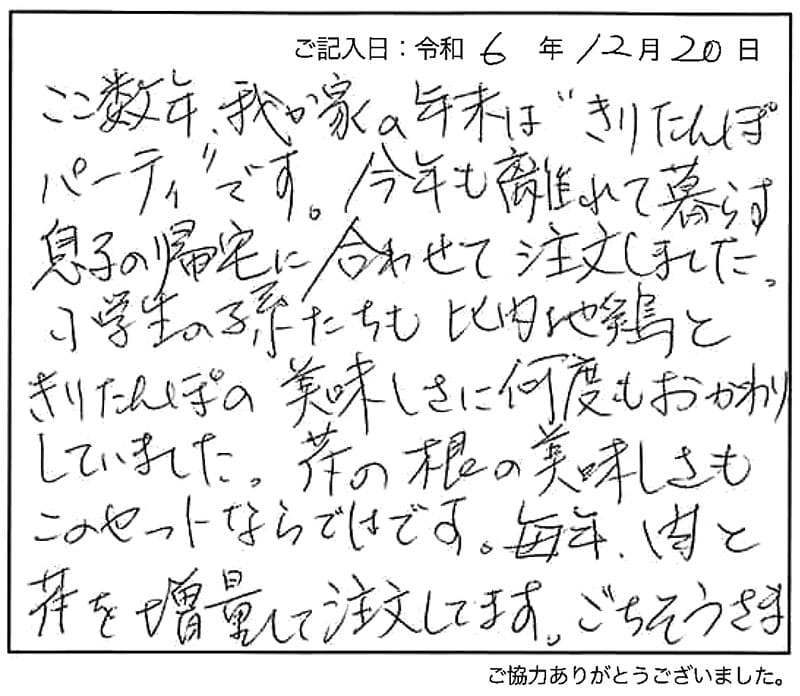 ご記入日：令和 6 年 12月 20 日
ここ数年、我が家の年末は"きりたんぽ
パーティ"です。今年も離れて暮らす
息子の帰宅に合わせて注文しました。
小学生の孫たちも比内地鶏と
きりたんぽの美味しさに何度もおかわり
していました。芹の根の美味しさも
このセットならではです。毎年、肉と
芹を増量して注文してます。ごちそうさま
ご協力ありがとうございました。